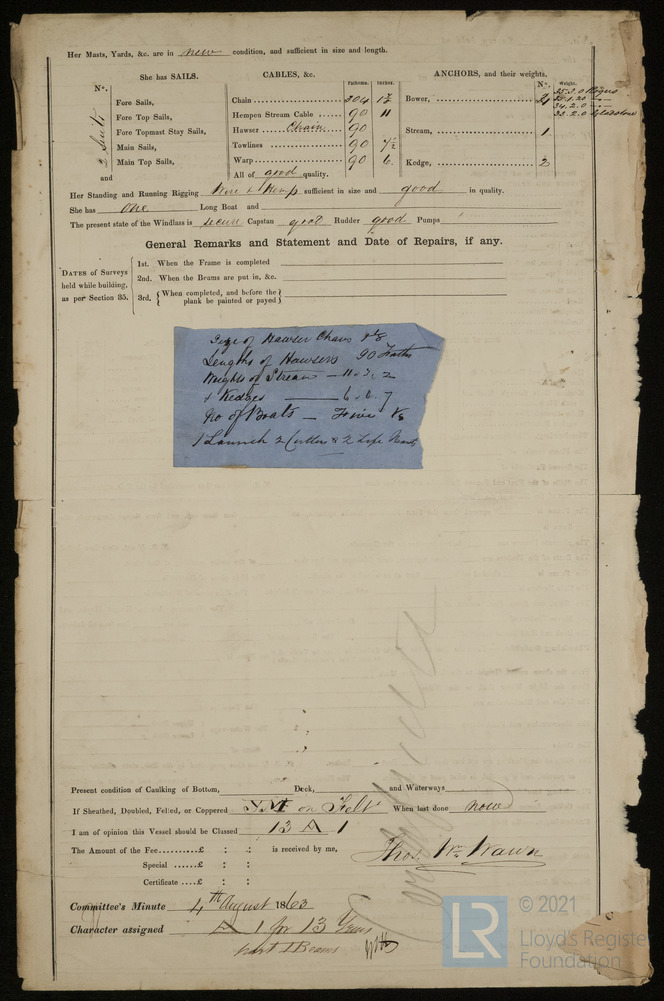 Her Masts, Yards, &c. are in new condition, and sufficient in size and length.
She has SAILS.
CABLES, &c.
ANCHORS, and their weights.
No.
Fathoms. Inches.
No. Weight.
2 Suits
Fore Sails,
Fore Top Sails,
Fore Topmast Stay Sails,
Main Sails,
Main Top Sails,
and
Chain 304
Hempen Stream Cable 90 11
Hawser Chain 90
Towlines 90
Warp 90 6
All of good quality.
Bower,
Stream, 1
Kedge, 2
35.3.0 Rogers
34.2.0
Her Standing and Running Rigging Wire & Hemp sufficient in size and good in quality.
She has One Long Boat and
The present state of the Windlass is secure Capstan good Rudder good Pumps
General Remarks and Statement and Date of Repairs, if any.
DATES of Surveys held while building, as per Section 35.
1st. When the Frame is completed
2nd. When the Beams are put in, &c.
3rd. { When completed, and before the plank be painted or payed }
Size of Hawser Chain
Lengths of Hawsers 90 Faths
Weights of Stream
& Kedges
No of Boats — Five
1 Launch 2 Cutters & 2 Life Boats
Present condition of Caulking of Bottom, Deck, and Waterways
If Sheathed, Doubled, Felted, or Coppered Y.M. on Felt When last done now
I am of opinion this Vessel should be Classed 13 A 1
The Amount of the Fee..........£ : : is received by me,
Special ......£ : :
Certificate ....£ : :
Thos. Wm. Wawn
Committee's Minute 4th August 1863
Character assigned A 1 for 13 Years
part I Beams
LR
© 2021
Lloyd's Register
Foundation